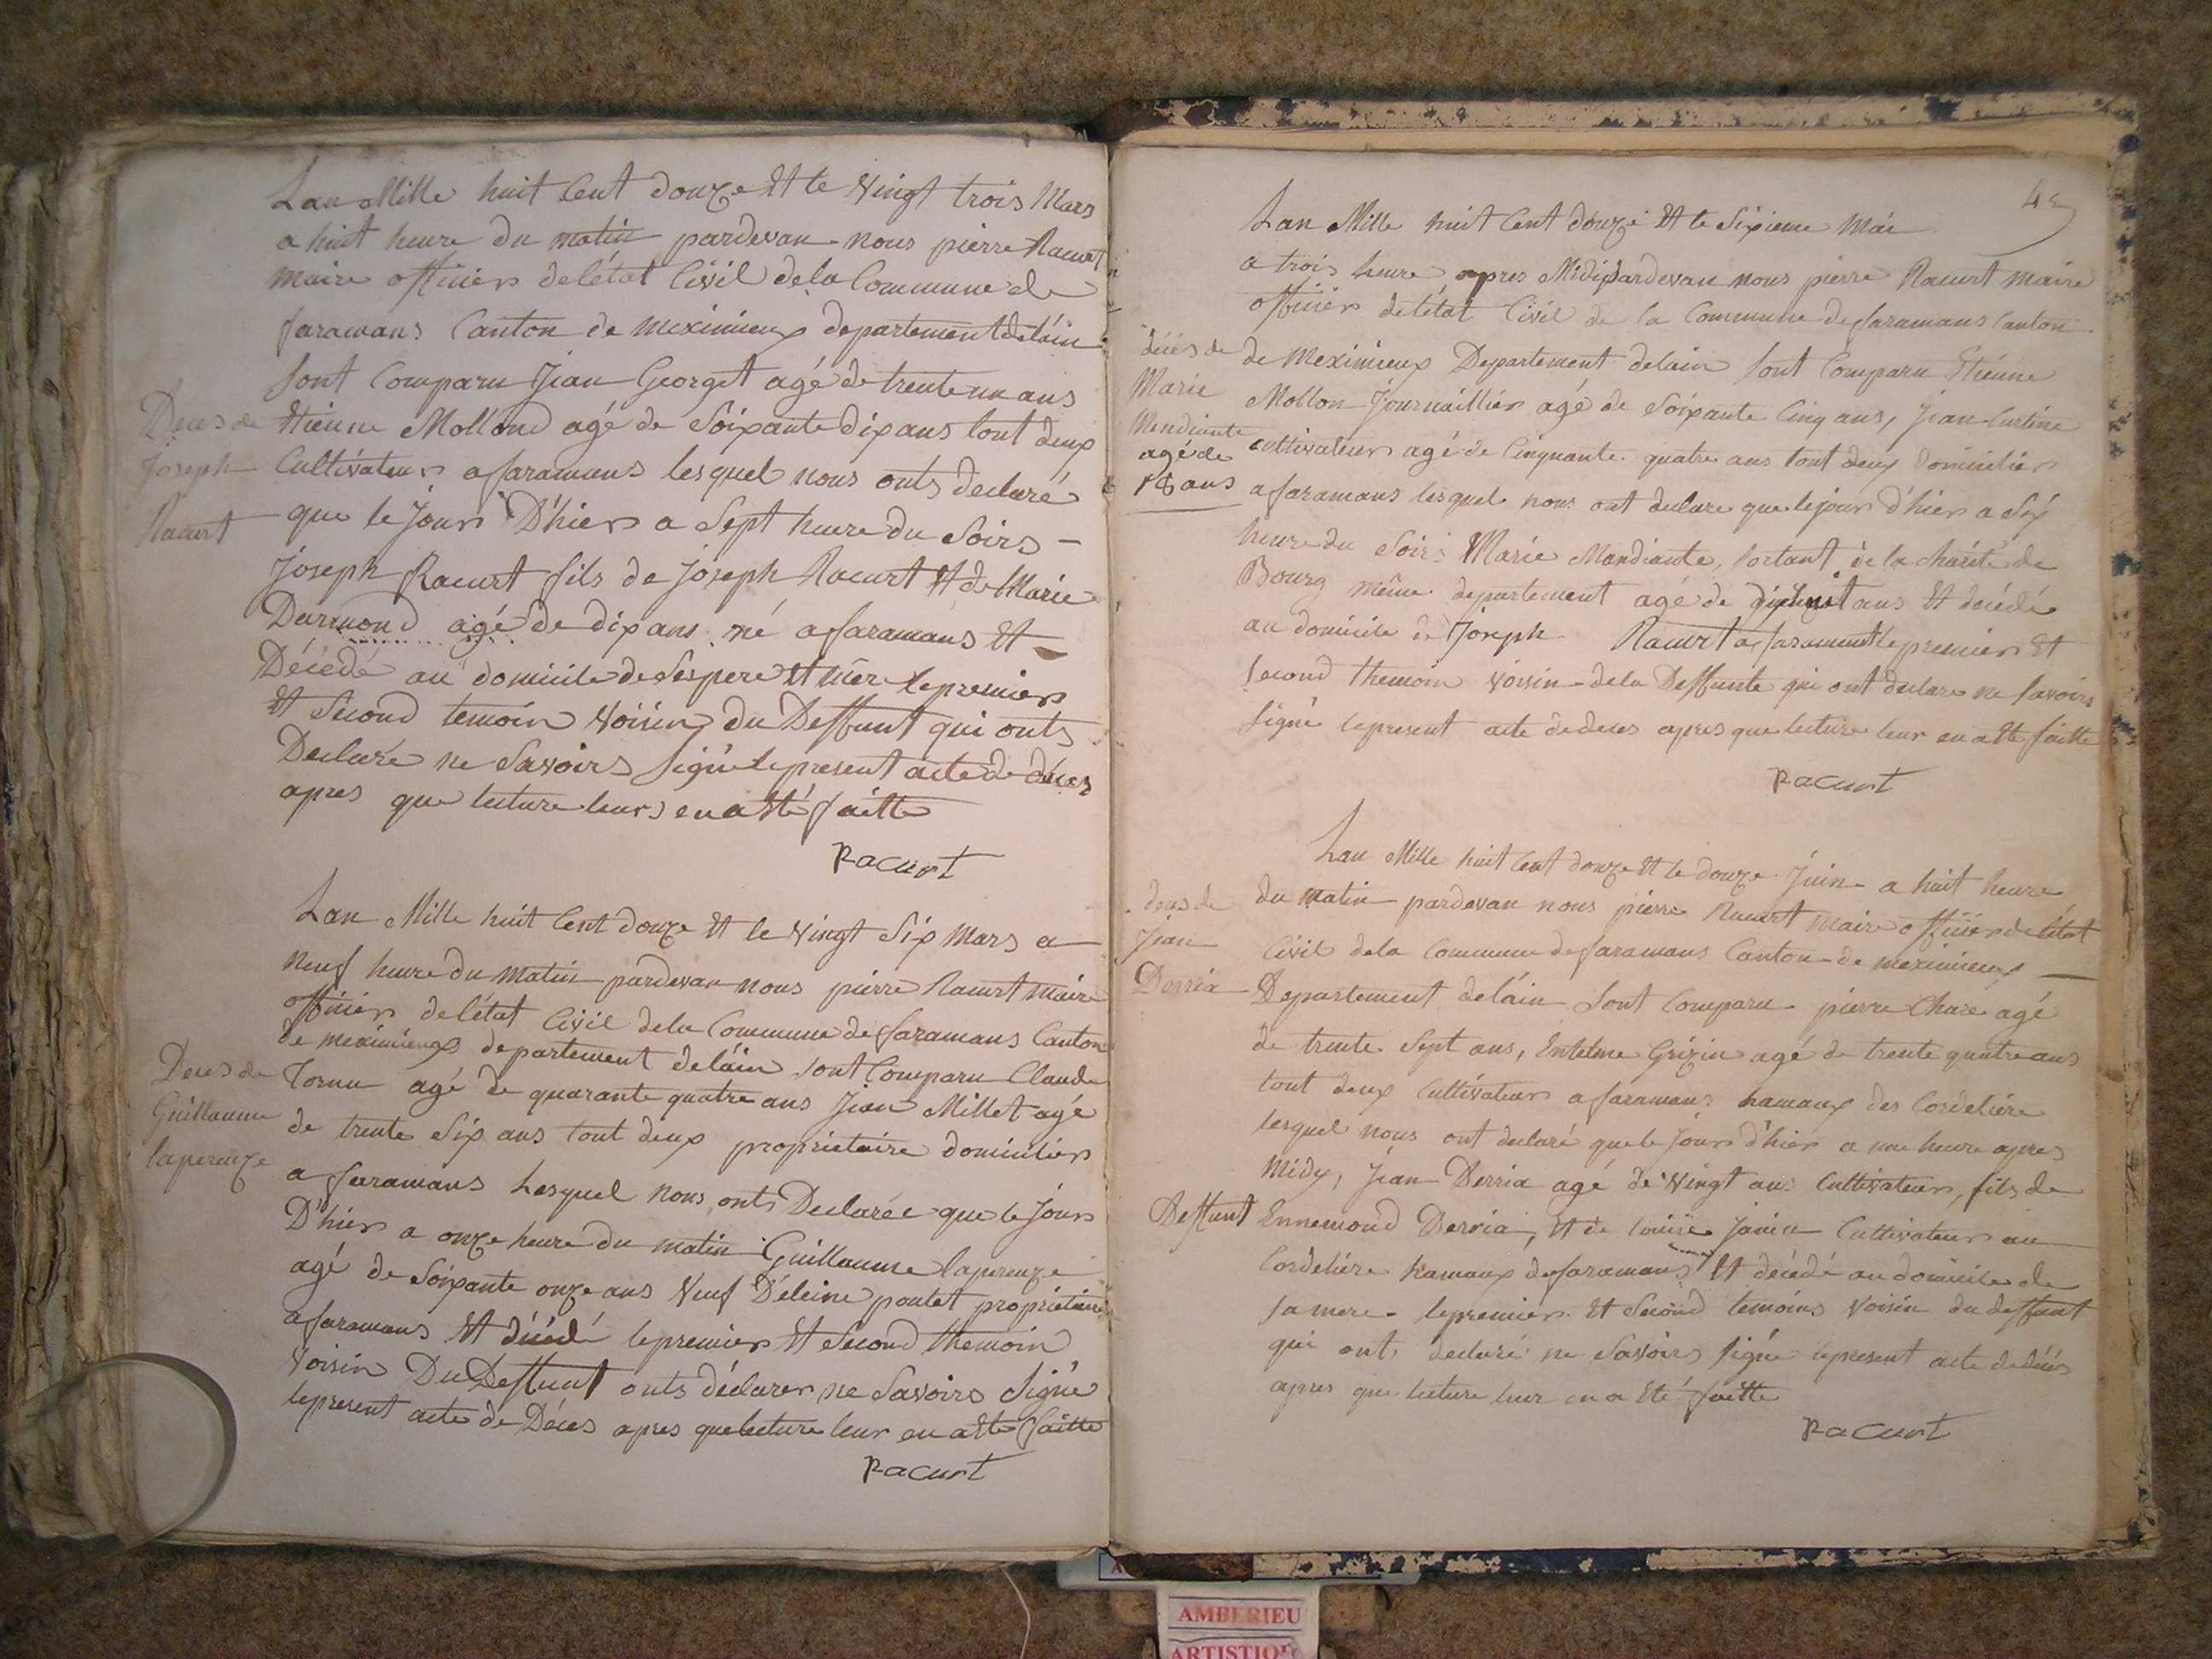 Lan Mille huit Cent douze Et le Vingt trois Mars
a huit heure du matin pardevan nous pierre Racurt
Maire officier de létat Civil de la Commune de
faramans Canton de meximieux departement de láin
Sont Comparu Jean Georget agé de trente un ans
Deces de Joseph Racurt
Etienne Mollond agé de Soixante dix ans tout deux
Cultivateur a faramans lesquel nous onts declaré
que le Jour D'hier a Sept heure du Soirs
Joseph Racurt fils de Joseph Racurt Et de Marie
Durmond agé de dix ans né a faramans Et
Décédé au domicile de Ses pere Et mére le premier
Et Second temoin Voisin du Deffunt qui onts
Declaré ne Savoirs Signé le present acte de décez
apres que lecture leurs en a Eté faitte
Racurt
Lan Mille huit Cent douze Et le Vingt Six Mars a
Neuf heure du Matin pardevan nous pierre Racurt maire
officier de létat Civil de la Commune de faramans Canton
de meximieux departement de láin sont Comparu Claude
Deces de Guillaume laperouze
Tornu agé de quarante quatre ans Jean Millet agé
de trente Six ans tout deux proprietaire domicilier
a faramans Lesquel nous onts Declarée que le Jour
D'hier a onze heure du matin Guillaume laperouze
agé de Soixante onze ans Veuf Déleine poulet proprietaire
a faramans Et décédé le premier Et Second themoin
Voisin Du Deffunt onts déclarer ne Savoirs Signé
le present acte de Déces apres que lecture leur en a Eté faitte
Racurt
Lan Mille huit Cent douze Et le Sixieme Mai
a trois heure apres Midi pardevan nous pierre Racurt maire
officier de létat Civil de la Commune de faramans Canton
décés de Marie Mendiante agé de 18 ans
de Meximieux Departement de lain Sont Comparu Etienne
Mollon Journaillier agé de Soixante Cinq ans, Jean Curtine
cultivateur agé de Cinquante quatre ans tout deux domicilier
a faramans lesquel nous ont declare que le jour d'hier a Six
heure du Soir Marie Mandiante, Sortant de la Charité de
Bourg même departement agé de dix huit ans Et décédé
au domicile de Joseph Racurt a faramans le premier Et
Second themoin Voisin de la Deffunte qui ont declare ne Savoirs
Signé le present acte de deces apres que lecture leur en a Eté faitte
Racurt
Lan Mille huit Cent douze Et le douze Juin a huit heure
du Matin pardevan nous pierre Racurt Maire officier de létat
deces de Jean Derria
Civil de la Commune de faramans Canton de meximieux
Departement de láin Sont Comparu pierre Charé agé
de trente Sept ans, Entelme Grizin agé de trente quatre ans
tout deux Cultivateur a faramans hamaux des Cordeliére
lesquel nous ont declaré que le Jour d'hier a une heure apres
Midy, Jean Derria agé de Vingt ans Cultivateur, fils de
Deffunt Ennemond Derria, Et de Louise Janin Cultivateur au
Cordeliére hamaux de faramans Et décédé au domicile de
sa mere le premier Et Second temoins Voisin du deffunt
qui ont declaré ne Savoirs Signé le present acte de décés
apres que lecture leur en a Eté faitte
Racurt
AMBERIEU